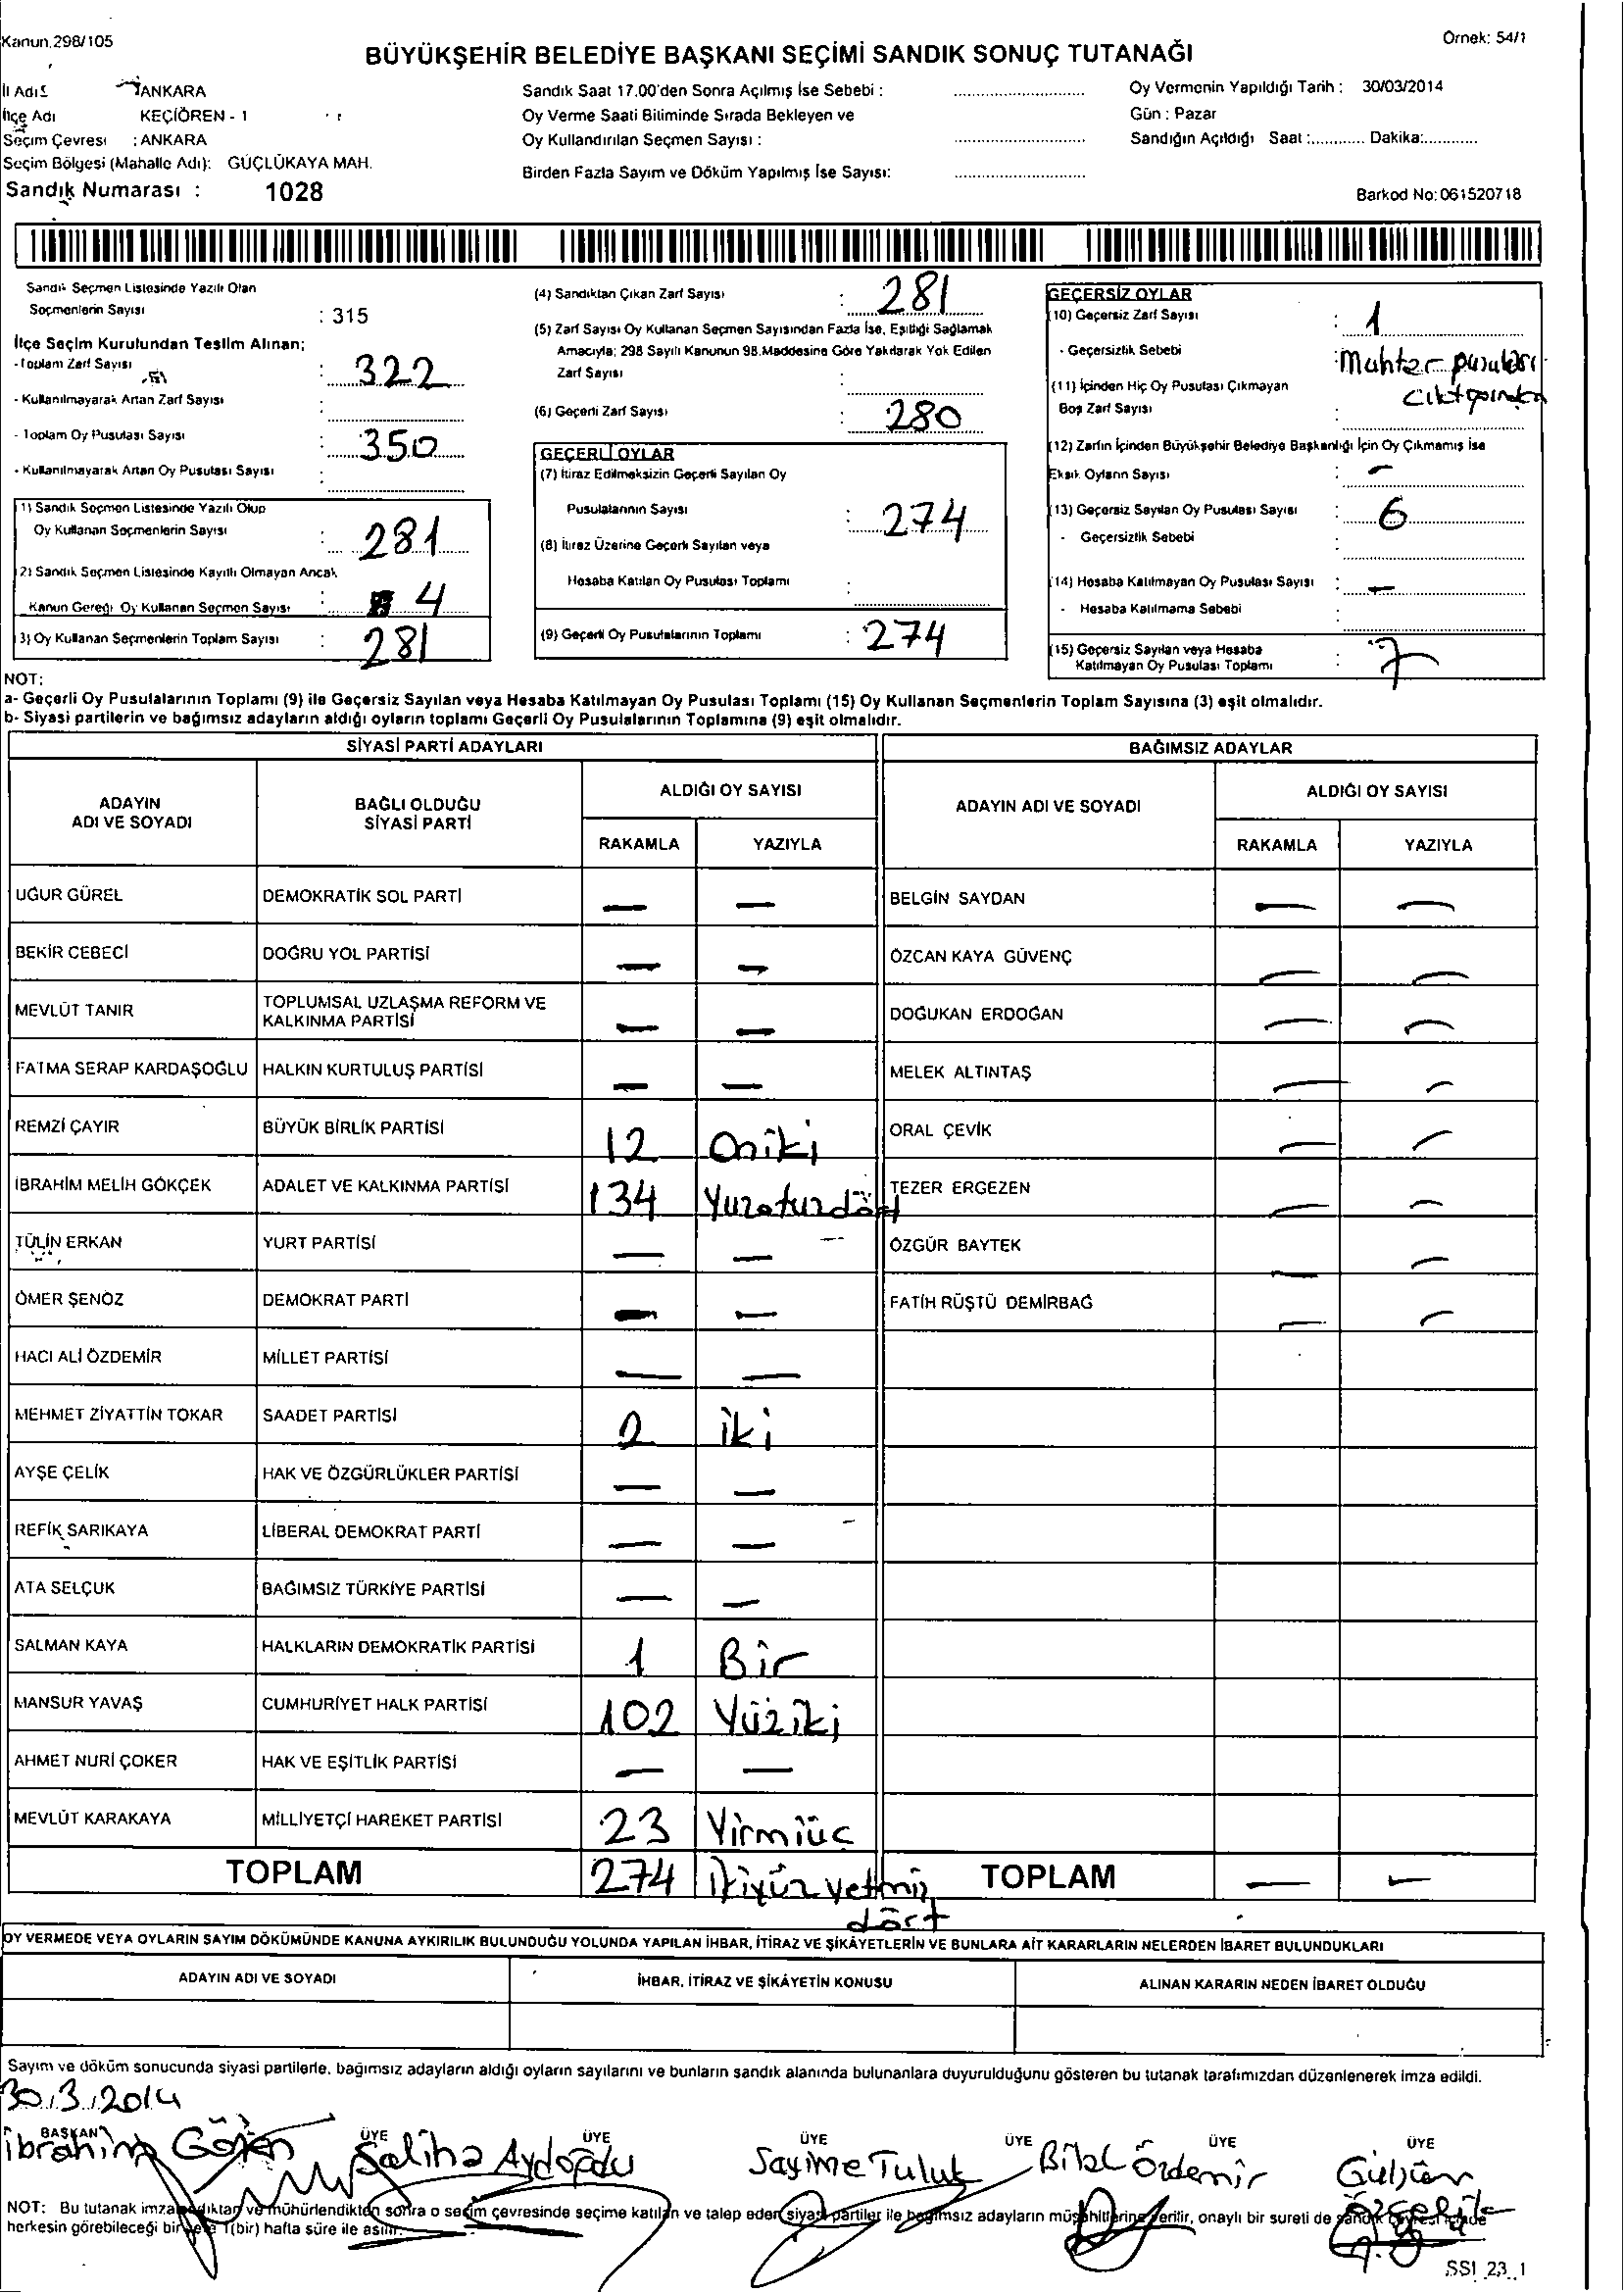 Kanun.298/105
Örnek: 54/1
BÜYÜKŞEHİR BELEDİYE BAŞKANI SEÇİMİ SANDIK SONUÇ TUTANAĞI
İl Adı : ANKARA
İlçe Adı KEÇİÖREN - 1
Seçim Çevresi : ANKARA
Seçim Bölgesi (Mahalle Adı): GÜÇLÜKAYA MAH.
Sandık Numarası : 1028
Sandık Saat 17.00'den Sonra Açılmış İse Sebebi :
Oy Verme Saati Bitiminde Sırada Bekleyen ve
Oy Kullandırılan Seçmen Sayısı :
Birden Fazla Sayım ve Döküm Yapılmış İse Sayısı:
Oy Vermenin Yapıldığı Tarih : 30/03/2014
Gün : Pazar
Sandığın Açıldığı Saat :............ Dakika:............
Barkod No:061520718
Sandık Seçmen Listesinde Yazılı Olan
Seçmenlerin Sayısı : 315
İlçe Seçim Kurulundan Teslim Alınan;
- Toplam Zarf Sayısı : 322
- Kullanılmayarak Artan Zarf Sayısı :
- Toplam Oy Pusulası Sayısı : 350
- Kullanılmayarak Artan Oy Pusulası Sayısı :
1) Sandık Seçmen Listesinde Yazılı Olup
Oy Kullanan Seçmenlerin Sayısı : 281
2) Sandık Seçmen Listesinde Kayıtlı Olmayan Ancak
Kanun Gereği Oy Kullanan Seçmen Sayısı : 4
3) Oy Kullanan Seçmenlerin Toplam Sayısı : 281
(4) Sandıktan Çıkan Zarf Sayısı : 281
(5) Zarf Sayısı Oy Kullanan Seçmen Sayısından Fazla İse, Eşitliği Sağlamak
Amacıyla; 298 Sayılı Kanunun 98.Maddesine Göre Yakılarak Yok Edilen
Zarf Sayısı :
(6) Geçerli Zarf Sayısı : 280
GEÇERLİ OYLAR
(7) İtiraz Edilmeksizin Geçerli Sayılan Oy
Pusulalarının Sayısı : 274
(8) İtiraz Üzerine Geçerli Sayılan veya
Hesaba Katılan Oy Pusulası Toplamı :
(9) Geçerli Oy Pusulalarının Toplamı : 274
GEÇERSİZ OYLAR
(10) Geçersiz Zarf Sayısı : 1
- Geçersizlik Sebebi : Muhtar pusulası
(11) İçinden Hiç Oy Pusulası Çıkmayan
Boş Zarf Sayısı
(12) Zarfın İçinden Büyükşehir Belediye Başkanlığı İçin Oy Çıkmamış İse
Eksik Oyların Sayısı : -
(13) Geçersiz Sayılan Oy Pusulası Sayısı : 6
- Geçersizlik Sebebi :
(14) Hesaba Katılmayan Oy Pusulası Sayısı : -
- Hesaba Katılmama Sebebi :
(15) Geçersiz Sayılan veya Hesaba
Katılmayan Oy Pusulası Toplamı : 7
NOT:
a- Geçerli Oy Pusulalarının Toplamı (9) ile Geçersiz Sayılan veya Hesaba Katılmayan Oy Pusulası Toplamı (15) Oy Kullanan Seçmenlerin Toplam Sayısına (3) eşit olmalıdır.
b- Siyasi partilerin ve bağımsız adayların aldığı oyların toplamı Geçerli Oy Pusulalarının Toplamına (9) eşit olmalıdır.
SİYASİ PARTİ ADAYLARI
ADAYIN ADI VE SOYADI
BAĞLI OLDUĞU SİYASİ PARTİ
ALDIĞI OY SAYISI
RAKAMLA YAZIYLA
UĞUR GÜREL DEMOKRATİK SOL PARTİ - -
BEKİR CEBECİ DOĞRU YOL PARTİSİ - -
MEVLÜT TANIR TOPLUMSAL UZLAŞMA REFORM VE KALKINMA PARTİSİ - -
FATMA SERAP KARDAŞOĞLU HALKIN KURTULUŞ PARTİSİ - -
REMZİ ÇAYIR BÜYÜK BİRLİK PARTİSİ 12 Oniki
İBRAHİM MELİH GÖKÇEK ADALET VE KALKINMA PARTİSİ 134 Yuzotuzdört
TÜLİN ERKAN YURT PARTİSİ - -
ÖMER ŞENÖZ DEMOKRAT PARTİ - -
HACI ALİ ÖZDEMİR MİLLET PARTİSİ - -
MEHMET ZİYATTİN TOKAR SAADET PARTİSİ 2 iki
AYŞE ÇELİK HAK VE ÖZGÜRLÜKLER PARTİSİ - -
REFİK SARIKAYA LİBERAL DEMOKRAT PARTİ - -
ATA SELÇUK BAĞIMSIZ TÜRKİYE PARTİSİ - -
SALMAN KAYA HALKLARIN DEMOKRATİK PARTİSİ 1 Bir
MANSUR YAVAŞ CUMHURİYET HALK PARTİSİ 102 Yüziki
AHMET NURİ ÇOKER HAK VE EŞİTLİK PARTİSİ - -
MEVLÜT KARAKAYA MİLLİYETÇİ HAREKET PARTİSİ 23 Yirmiüc
TOPLAM 274 İkiyüzyetmiş dört
BAĞIMSIZ ADAYLAR
ADAYIN ADI VE SOYADI
ALDIĞI OY SAYISI
RAKAMLA YAZIYLA
BELGİN SAYDAN - -
ÖZCAN KAYA GÜVENÇ - -
DOĞUKAN ERDOĞAN - -
MELEK ALTINTAŞ - -
ORAL ÇEVİK - -
TEZER ERGEZEN - -
ÖZGÜR BAYTEK - -
FATİH RÜŞTÜ DEMİRBAĞ - -
TOPLAM - -
OY VERMEDE VEYA OYLARIN SAYIM DÖKÜMÜNDE KANUNA AYKIRILIK BULUNDUĞU YOLUNDA YAPILAN İHBAR, İTİRAZ VE ŞİKÂYETLERİN VE BUNLARA AİT KARARLARIN NELERDEN İBARET BULUNDUKLARI
ADAYIN ADI VE SOYADI
İHBAR, İTİRAZ VE ŞİKÂYETİN KONUSU
ALINAN KARARIN NEDEN İBARET OLDUĞU
Sayım ve döküm sonucunda siyasi partilerle, bağımsız adayların aldığı oyların sayılarını ve bunların sandık alanında bulunanlara duyurulduğunu gösteren bu tutanak tarafımızdan düzenlenerek imza edildi.
30.3.2014
BAŞKAN ÜYE ÜYE ÜYE ÜYE ÜYE ÜYE
ibrahim Saliha Aydoğdu Sayime Tuluk Bilal Özdemir Gülşen
NOT: Bu tutanak imzalandıktan ve mühürlendikten sonra o seçim çevresinde seçime katılan ve talep eden siyasi partiler ile bağımsız adayların müşahitlerine verilir, onaylı bir sureti de sandık çevresi içinde
herkesin görebileceği bir yere 1(bir) hafta süre ile asılır.
SSI_23_1